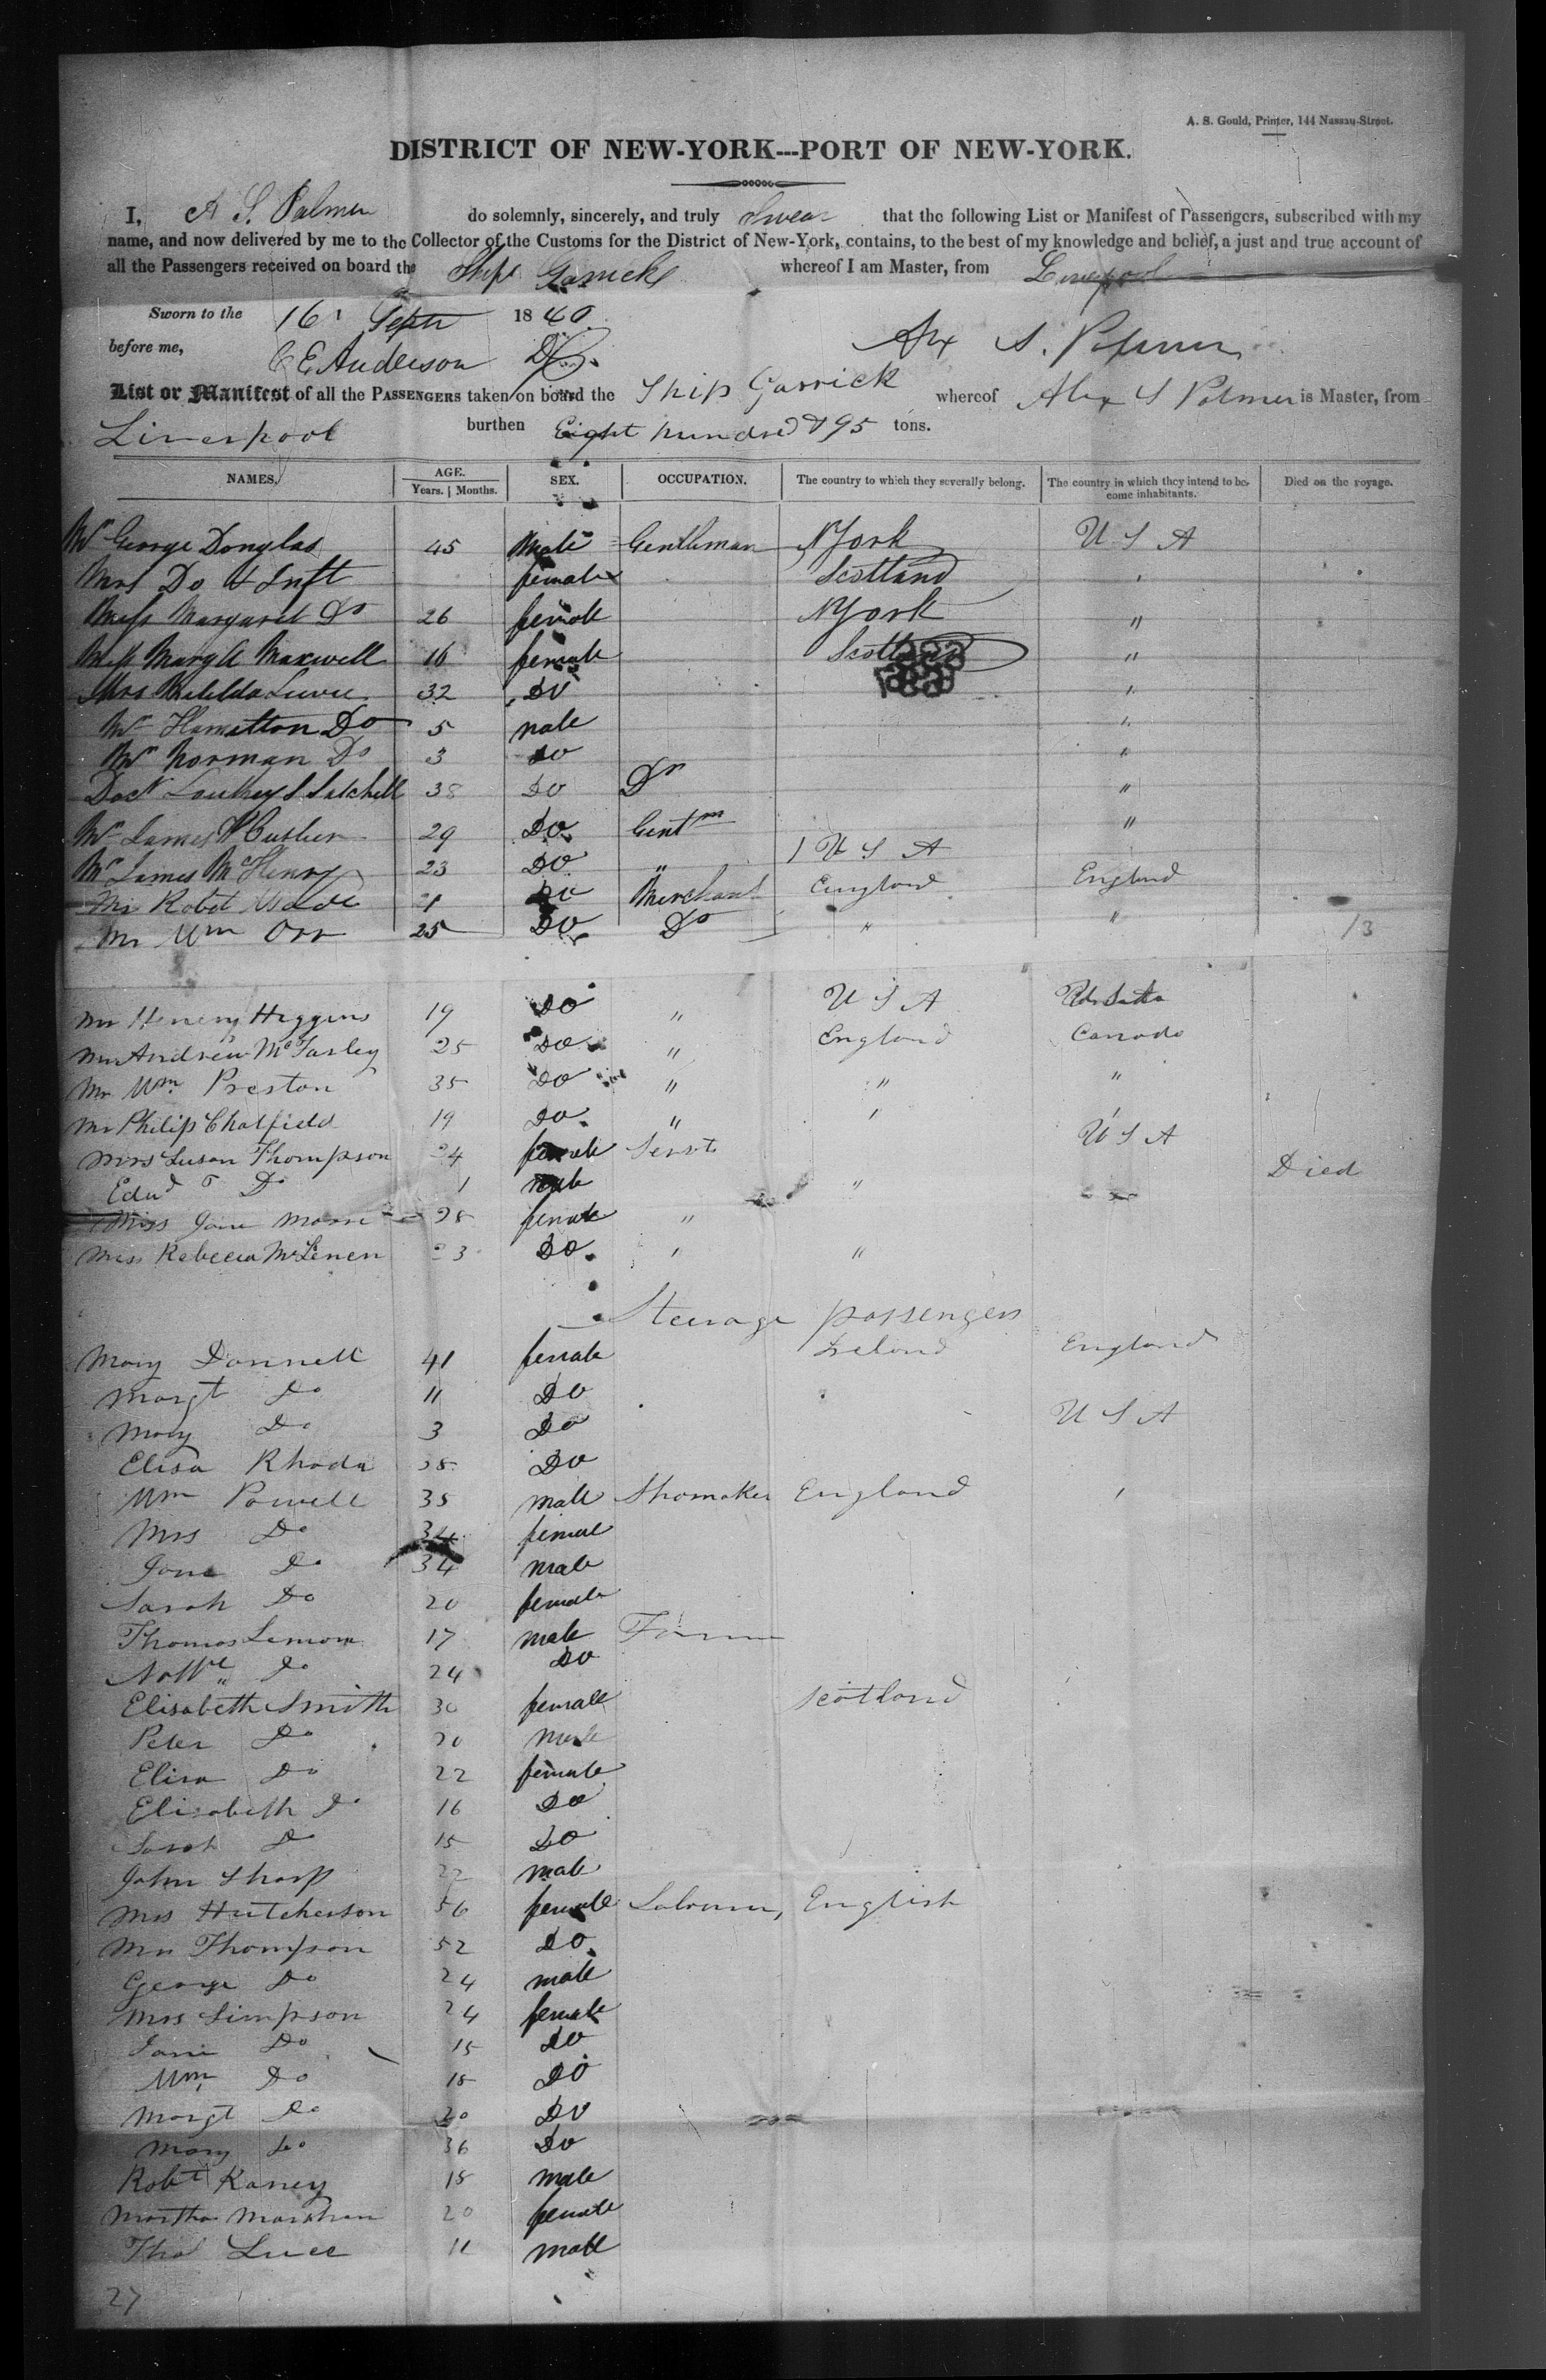 A. S. Gould, Printer, 144 Nassau-Street.
DISTRICT OF NEW-YORK---PORT OF NEW-YORK.
I, A S. Palmer do solemnly, sincerely, and truly Swear that the following List or Manifest of Passengers, subscribed with my
name, and now delivered by me to the Collector of the Customs for the District of New-York, contains, to the best of my knowledge and belief, a just and true account of
all the Passengers received on board the Ship Garrick whereof I am Master, from Liverpool
Sworn to the 16 Septr 1840
before me, C E Anderson
Alex S. Palmer
List or Manifest of all the PASSENGERS taken on board the Ship Garrick whereof Alex S Palmer is Master, from
Liverpool burthen Eight hundred & 95 tons.
NAMES. AGE. Years. | Months. SEX. OCCUPATION. The country to which they severally belong. The country in which they intend to become inhabitants. Died on the voyage.
Mr George Douglas 45 Male Gentleman NYork U S A
Mrs Do & Inft female Scotland "
Miss Margaret Do 26 female NYork "
Miss Mary A Maxwell 16 female Scotland "
Mrs 32 Do "
Mr Hamilton Do 5 male "
Mr Norman Do 3 Do "
Doct S Satchell 38 Do Dr "
Mr James 29 Do Gentm "
Mr James McHenry 23 Do " 1 U S A
Mr Robt Wade 21 Do Merchant England England
Mr Wm Orr 25 Do Do " " 13
Mr Henery Higgins 19 Do " U S A
Mr Andrew McFarley 25 Do " England Canada
Mr Wm Preston 35 Do " " "
Mr Philip Chatfield 19 Do " "
Mrs Susan Thompson 24 female Servt U S A
Edwd Do 1 male " Died
Miss Jane 28 female "
Miss Rebecca McLenen 23 Do " "
Steerage passengers
Mary Donnell 41 female Ireland England
Margt Do 11 Do
Mary Do 3 Do U S A
Elisa Rhoda 38 Do
Wm Powell 35 male Shomaker England "
Mrs Do 34 female
Jane Do 34 male
Sarah Do 20 female
Thomas Lemon 17 male
Do 24 Do
Elisabeth Smith 30 female Scotland
Peter Do 20 male
Elisa Do 22 female
Elisabeth Do 16 Do
Sarah Do 15 Do
John Sharp 22 male
Mrs Hutcherson 56 female English
Mrs Thompson 52 Do
George Do 24 male
Mrs Simpson 24 female
Jane Do 15 Do
Wm Do 15 Do
Margt Do 20 Do
Mary Do 36 Do
Robt Kaney 15 male
Martha 20 female
Thos Luce 11 male
27